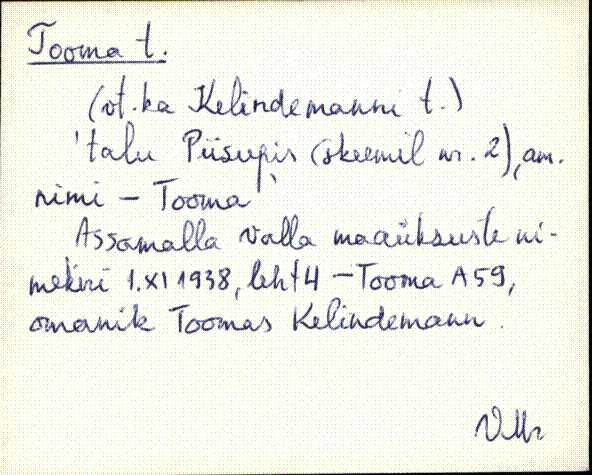 Tooma t.
(vt. ka Kelindemanni t.)
'talu Piisupis (skeemil nr. 2), am.
nimi – Tooma'
Assamalla valla maaüksuste ni-
mekiri 1.XI 1938, leht 4 – Tooma A59,
omanik Toomas Kelindemann.
VMr